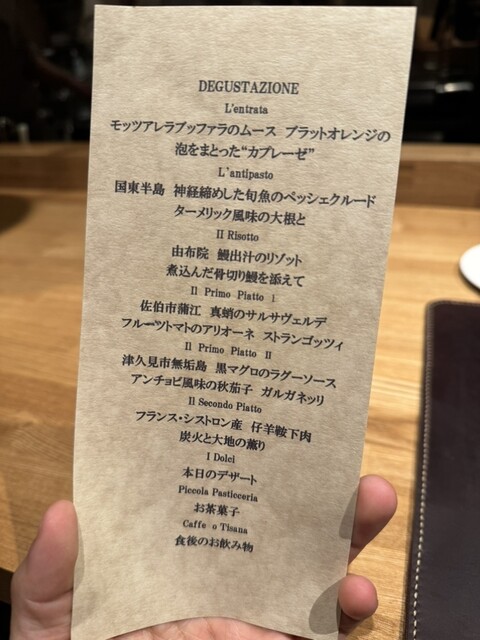 DEGUSTAZIONE
L'entrata
モッツアレラブッファラのムース ブラットオレンジの
泡をまとった"カプレーゼ"
L'antipasto
国東半島 神経締めした旬魚のペッシェクルード
ターメリック風味の大根と
Il Risotto
由布院 鰻出汁のリゾット
煮込んだ骨切り鰻を添えて
Il Primo Piatto Ⅰ
佐伯市蒲江 真蛸のサルサヴェルデ
フルーツトマトのアリオーネ ストランゴッツィ
Il Primo Piatto Ⅱ
津久見市無垢島 黒マグロのラグーソース
アンチョビ風味の秋茄子 ガルガネッリ
Il Secondo Piatto
フランス・シストロン産 仔羊鞍下肉
炭火と大地の薫り
I Dolci
本日のデザート
Piccola Pasticceria
お茶菓子
Caffe o Tisana
食後のお飲み物